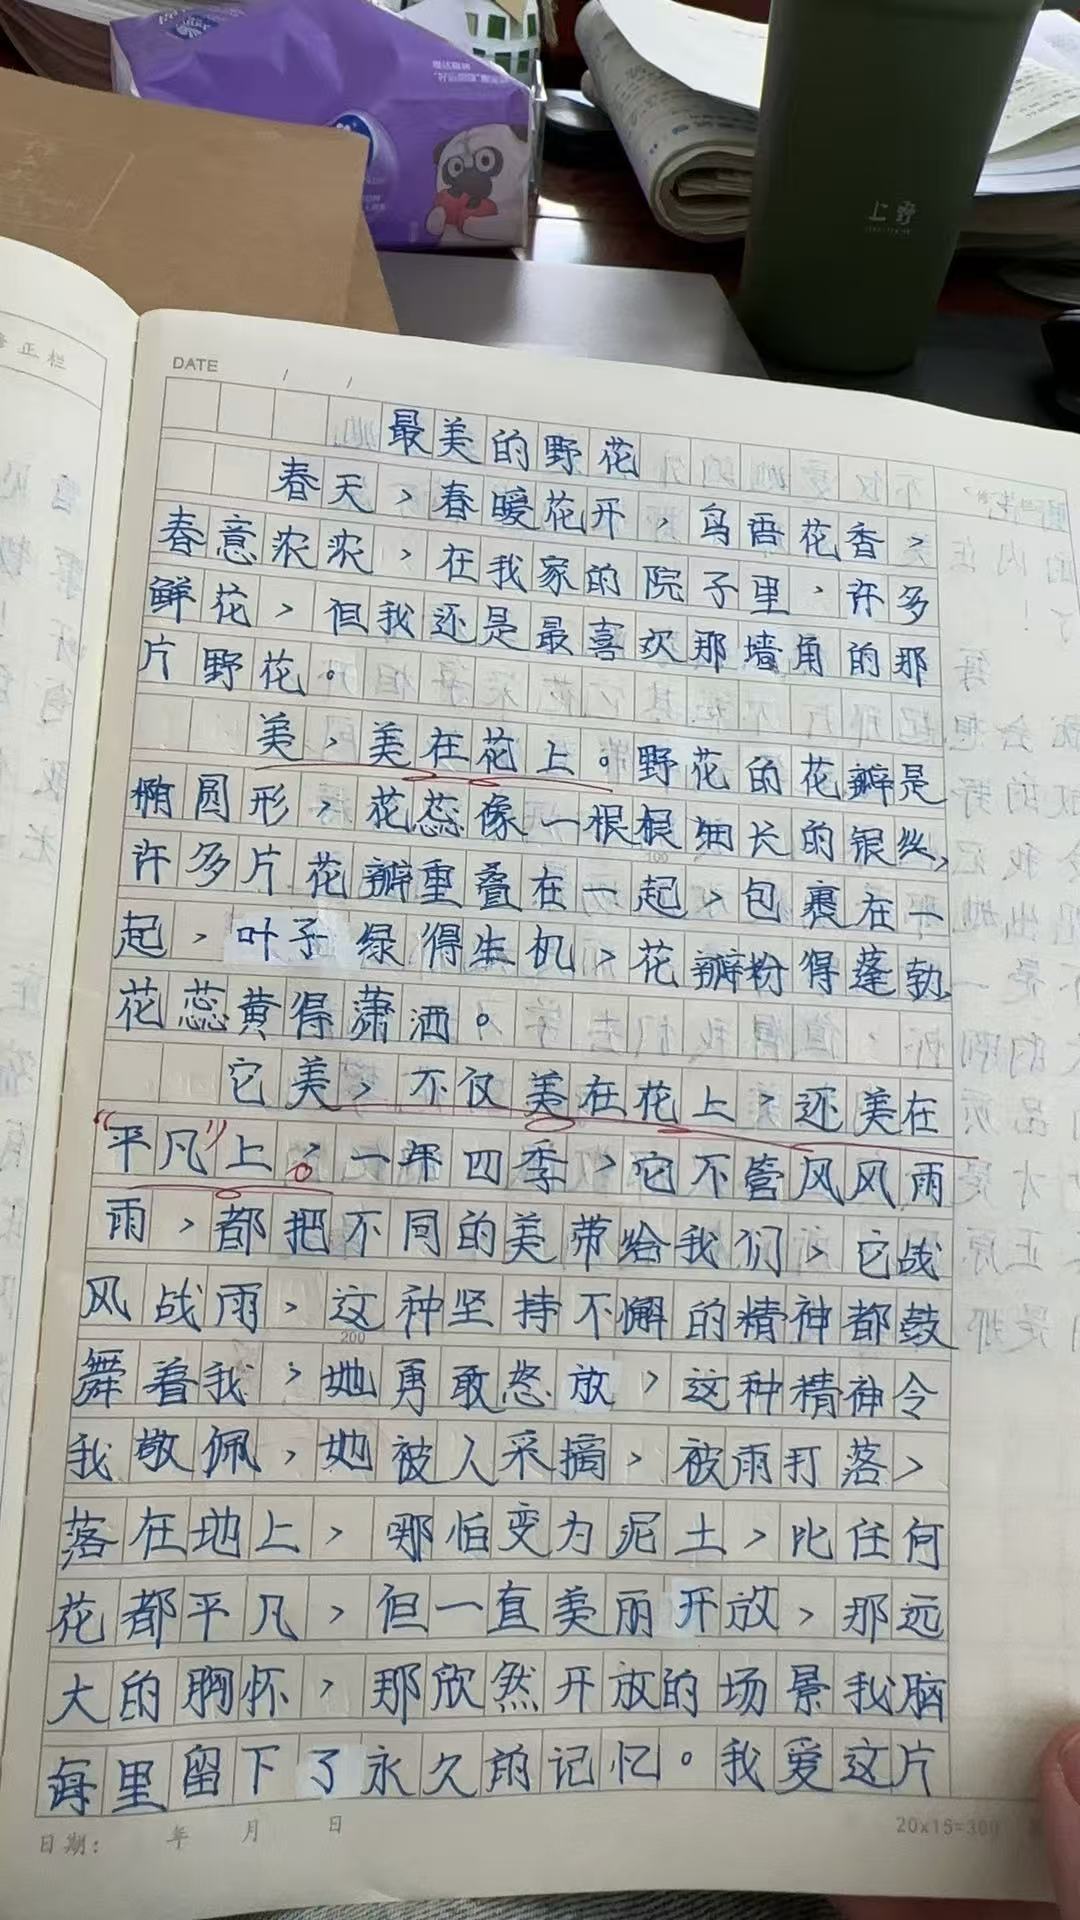 上野
正栏
DATE / /
最美的野花
春天，春暖花开，鸟语花香，
春意浓浓，在我家的院子里，许多
鲜花，但我还是最喜欢那墙角的那
片野花。
美，美在花上。野花的花瓣是
椭圆形，花蕊像一根根细长的银丝，
许多片花瓣重叠在一起，包裹在一
起，叶子绿得生机，花瓣粉得蓬勃，
花蕊黄得潇洒。
它美，不仅美在花上，还美在
“平凡”上。一年四季，它不管风风雨
雨，都把不同的美带给我们，它战
风战雨，这种坚持不懈的精神都鼓
100
200
舞着我，她勇敢怒放，这种精神令
我敬佩，她被人采摘，被雨打落，
落在地上，哪怕变为泥土，比任何
花都平凡，但一直美丽开放，那远
大的胸怀，那欣然开放的场景我脑
海里留下了永久的记忆。我爱这片
日期： 年 月 日
20x15=300